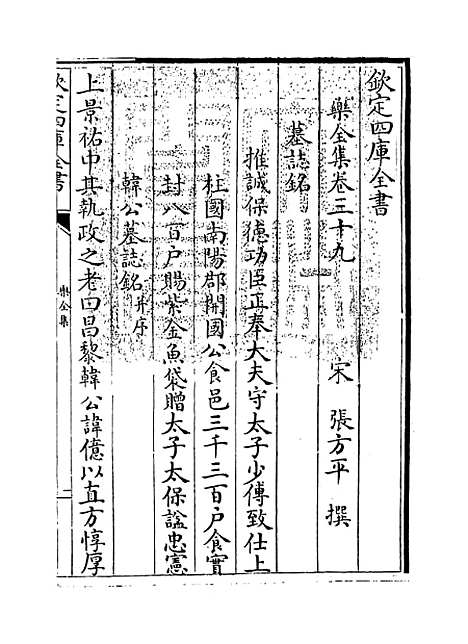 欽定四庫全書
樂全集卷三十九
宋 張方平 撰
墓誌銘
推誠保德功臣正奉大夫守太子少傅致仕上
柱國南陽郡開國公食邑三千三百户食實
封八百户賜紫金魚袋贈太子太保諡忠憲
韓公墓誌銘并序
上景祐中其執政之老曰昌黎韓公諱億以直方惇厚
欽定四庫全書
樂全集